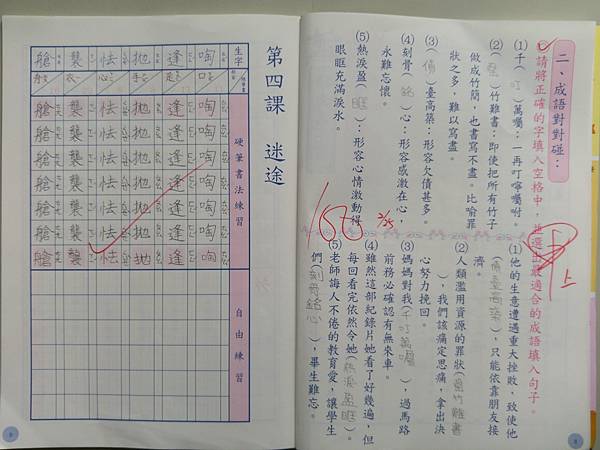 二、成語對對碰：
請將正確的字填入空格中，並選出最適合的成語填入句子。
(1)千(叮)萬囑：一再叮嚀囑咐。
(2)(罄)竹難書：即使把所有竹子
做成竹簡，也書寫不盡。比喻罪
狀之多，難以寫盡。
(3)(債)臺高築：形容欠債甚多。
(4)刻骨(銘)心：形容感激在心，
永難忘懷。
(5)熱淚盈(眶)：形容心情激動得
眼眶充滿淚水。
(1)他的生意遭遇重大挫敗，致使他
(債臺高築)，只能依靠朋友接
濟。
(2)人類濫用資源的罪狀(罄竹難書
)，我們該痛定思痛，拿出決
心努力挽回。
(3)媽媽對我(千叮萬囑)，過馬路
前務必確認有無來車。
(4)雖然這部紀錄片她看了好幾遍，但
每回看完依然令她(熱淚盈眶)。
(5)老師誨人不倦的教育愛，讓學生
們(刻骨銘心)，畢生難忘。
第四課 迷途
生字 硬筆書法練習 自由練習
啕 口 啕 啕 啕 啕 啕 啕 啕
逢 逢 逢 逢 逢 逢 逢 逢 逢
拋 手 拋 拋 拋 拋 拋 拋 拋
怯 心 怯 怯 怯 怯 怯 怯 怯
襲 衣 襲 襲 襲 襲 襲 襲 襲
艙 舟 艙 艙 艙 艙 艙 艙 艙